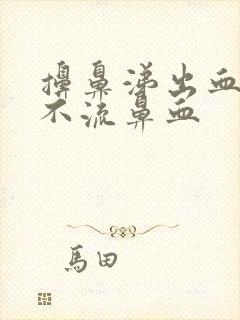 擤鼻涕出血
不流鼻血
馬田